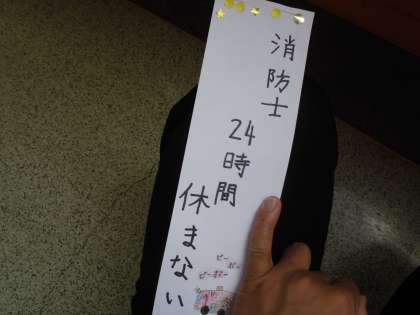 消防士
24時間
休まない
ピー
ポー
ピーポー